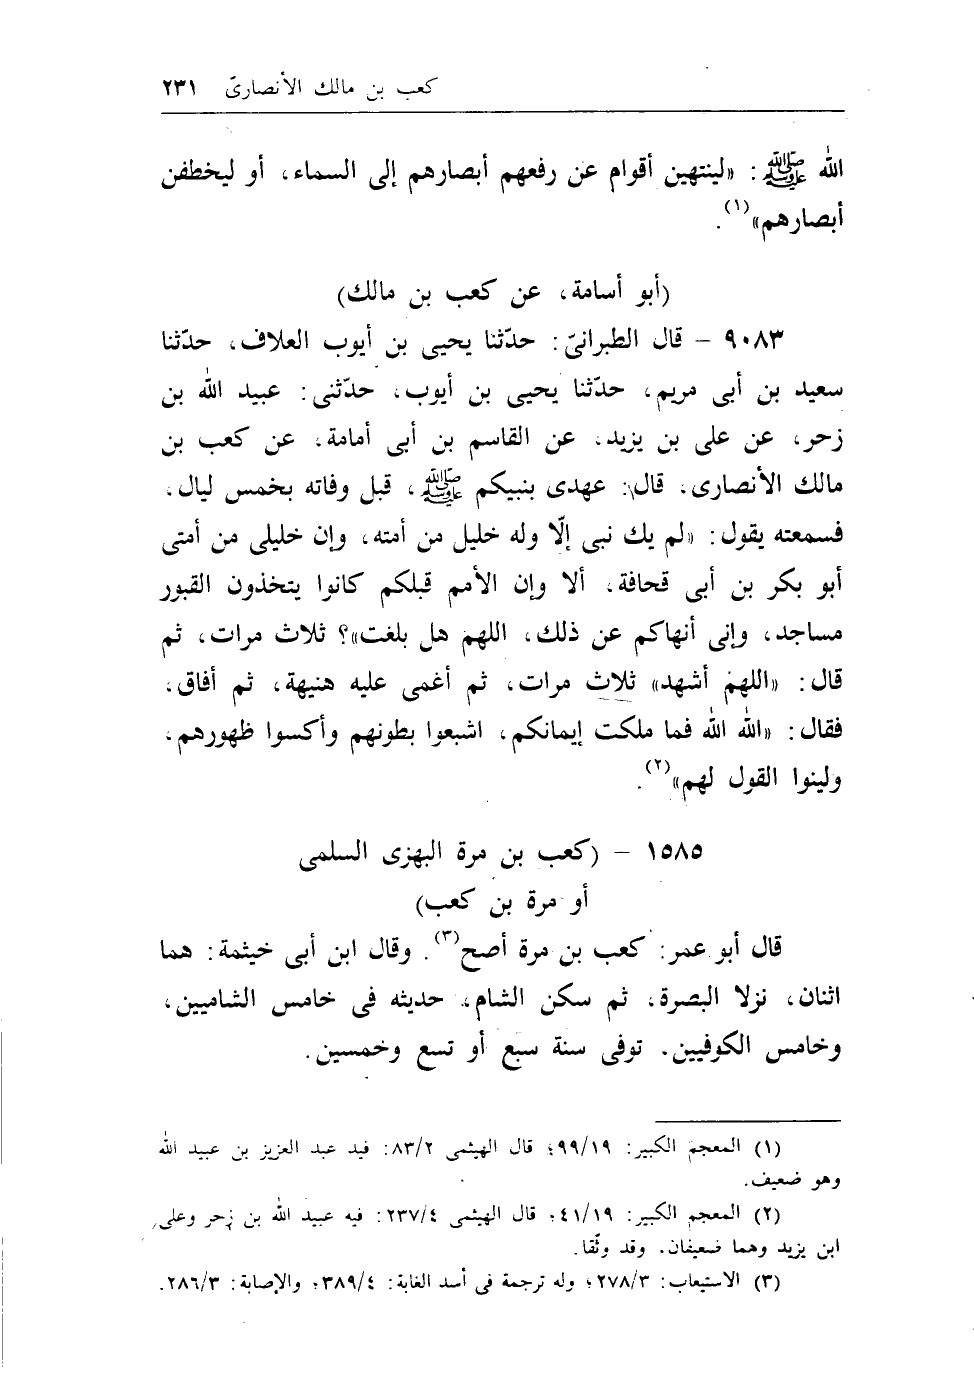 كعب بن مالك الأنصارىّ ٢٣١
الله ﷺ: «لينتهين أقوام عن رفعهم أبصارهم إلى السماء، أو ليخطفن
أبصارهم»(١).
(أبو أسامة، عن كعب بن مالك)
٩٠٨٣ - قال الطبرانىّ: حدّثنا يحيى بن أيوب العلاف، حدّثنا
سعيد بن أبى مريم، حدّثنا يحيى بن أيوب، حدّثنى: عبيد الله بن
زحر، عن على بن يزيد، عن القاسم بن أبى أمامة، عن كعب بن
مالك الأنصارى، قال: عهدى بنبيكم ﷺ، قبل وفاته بخمس ليال،
فسمعته يقول: «لم يك نبى إلّا وله خليل من أمته، وإن خليلى من أمتى
أبو بكر بن أبى قحافة، ألا وإن الأمم قبلكم كانوا يتخذون القبور
مساجد، وإنى أنهاكم عن ذلك، اللهم هل بلغت»؟ ثلاث مرات، ثم
قال: «اللهم أشهد» ثلاث مرات، ثم أغمى عليه هنيهة، ثم أفاق،
فقال: «الله الله فما ملكت إيمانكم، اشبعوا بطونهم وأكسوا ظهورهم،
ولينوا القول لهم»(٢).
١٥٨٥ - (كعب بن مرة البهزى السلمى
أو مرة بن كعب)
قال أبو عمر: كعب بن مرة أصح(٣). وقال ابن أبى خيثمة: هما
اثنان، نزلا البصرة، ثم سكن الشام، حديثه فى خامس الشاميين،
وخامس الكوفيين. توفى سنة سبع أو تسع وخمسين.
(١) المعجم الكبير: ٩٩/١٩؛ قال الهيثمى ٨٣/٢: فيد عبد العزيز بن عبيد الله
وهو ضعيف.
(٢) المعجم الكبير: ٤١/١٩، قال الهيثمى ٢٣٧/٤: فيه عبيد الله بن زحر وعلى
ابن يزيد وهما ضعيفان. وقد وثّقا.
(٣) الاستيعاب: ٢٧٨/٣؛ وله ترجمة فى أسد الغابة: ٣٨٩/٤؛ والإصابة: ٢٨٦/٣.